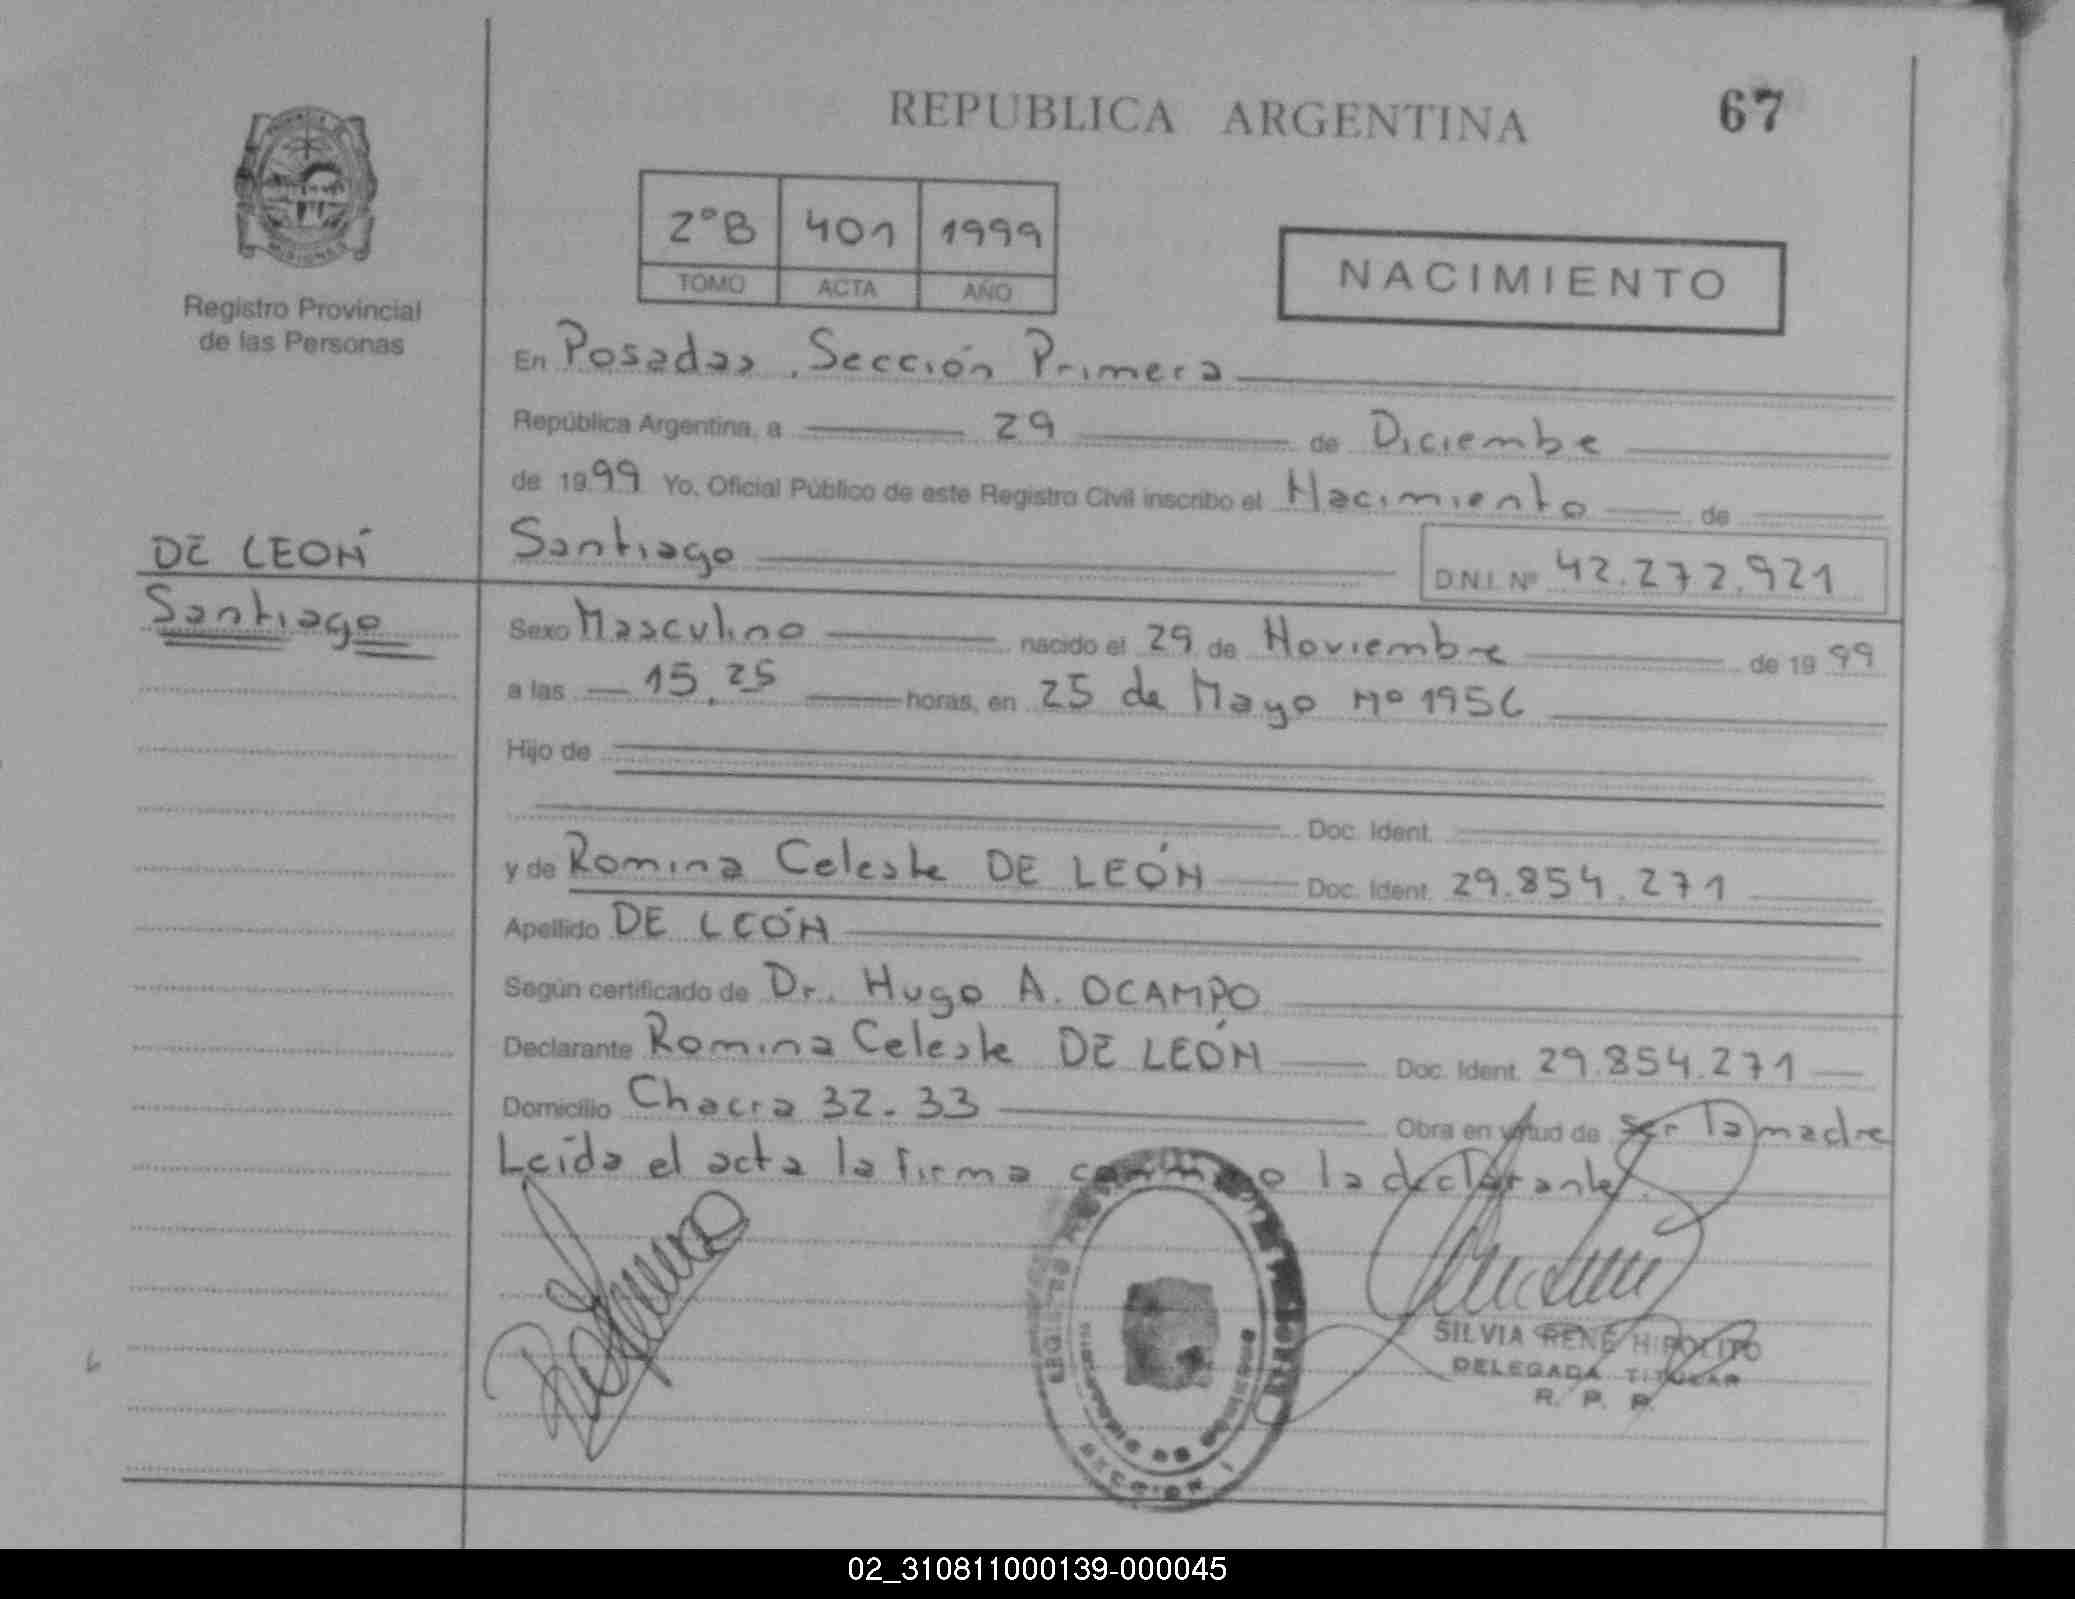 REPUBLICA ARGENTINA
67
2°B 401 1999
TOMO ACTA AÑO
NACIMIENTO
MISIONES
Registro Provincial
de las Personas
En Posadas, Sección Primera
República Argentina, a 29 de Diciembe
de 1999 Yo, Oficial Público de este Registro Civil inscribo el Nacimiento de
DE LEON
Santiago
D.N.I. Nº 42.272.921
Santiago
Sexo Masculino nacido el 29 de Noviembre de 1999
a las 15.25 horas, en 25 de Mayo Nº 1956
Hijo de
Doc. Ident.
y de Romina Celeste DE LEÓN Doc. Ident. 29.854.271
Apellido DE LEÓN
Según certificado de Dr. Hugo A. OCAMPO
Declarante Romina Celeste DE LEÓN Doc. Ident. 29.854.271
Domicilio Chacra 32-33 Obra en virtud de ser la madre
Leída el acta la firma conmigo la declarante.
SILVIA RENE HIPOLITO
DELEGADA TITULAR
R. P. P.
SECCION 1
02_310811000139-000045